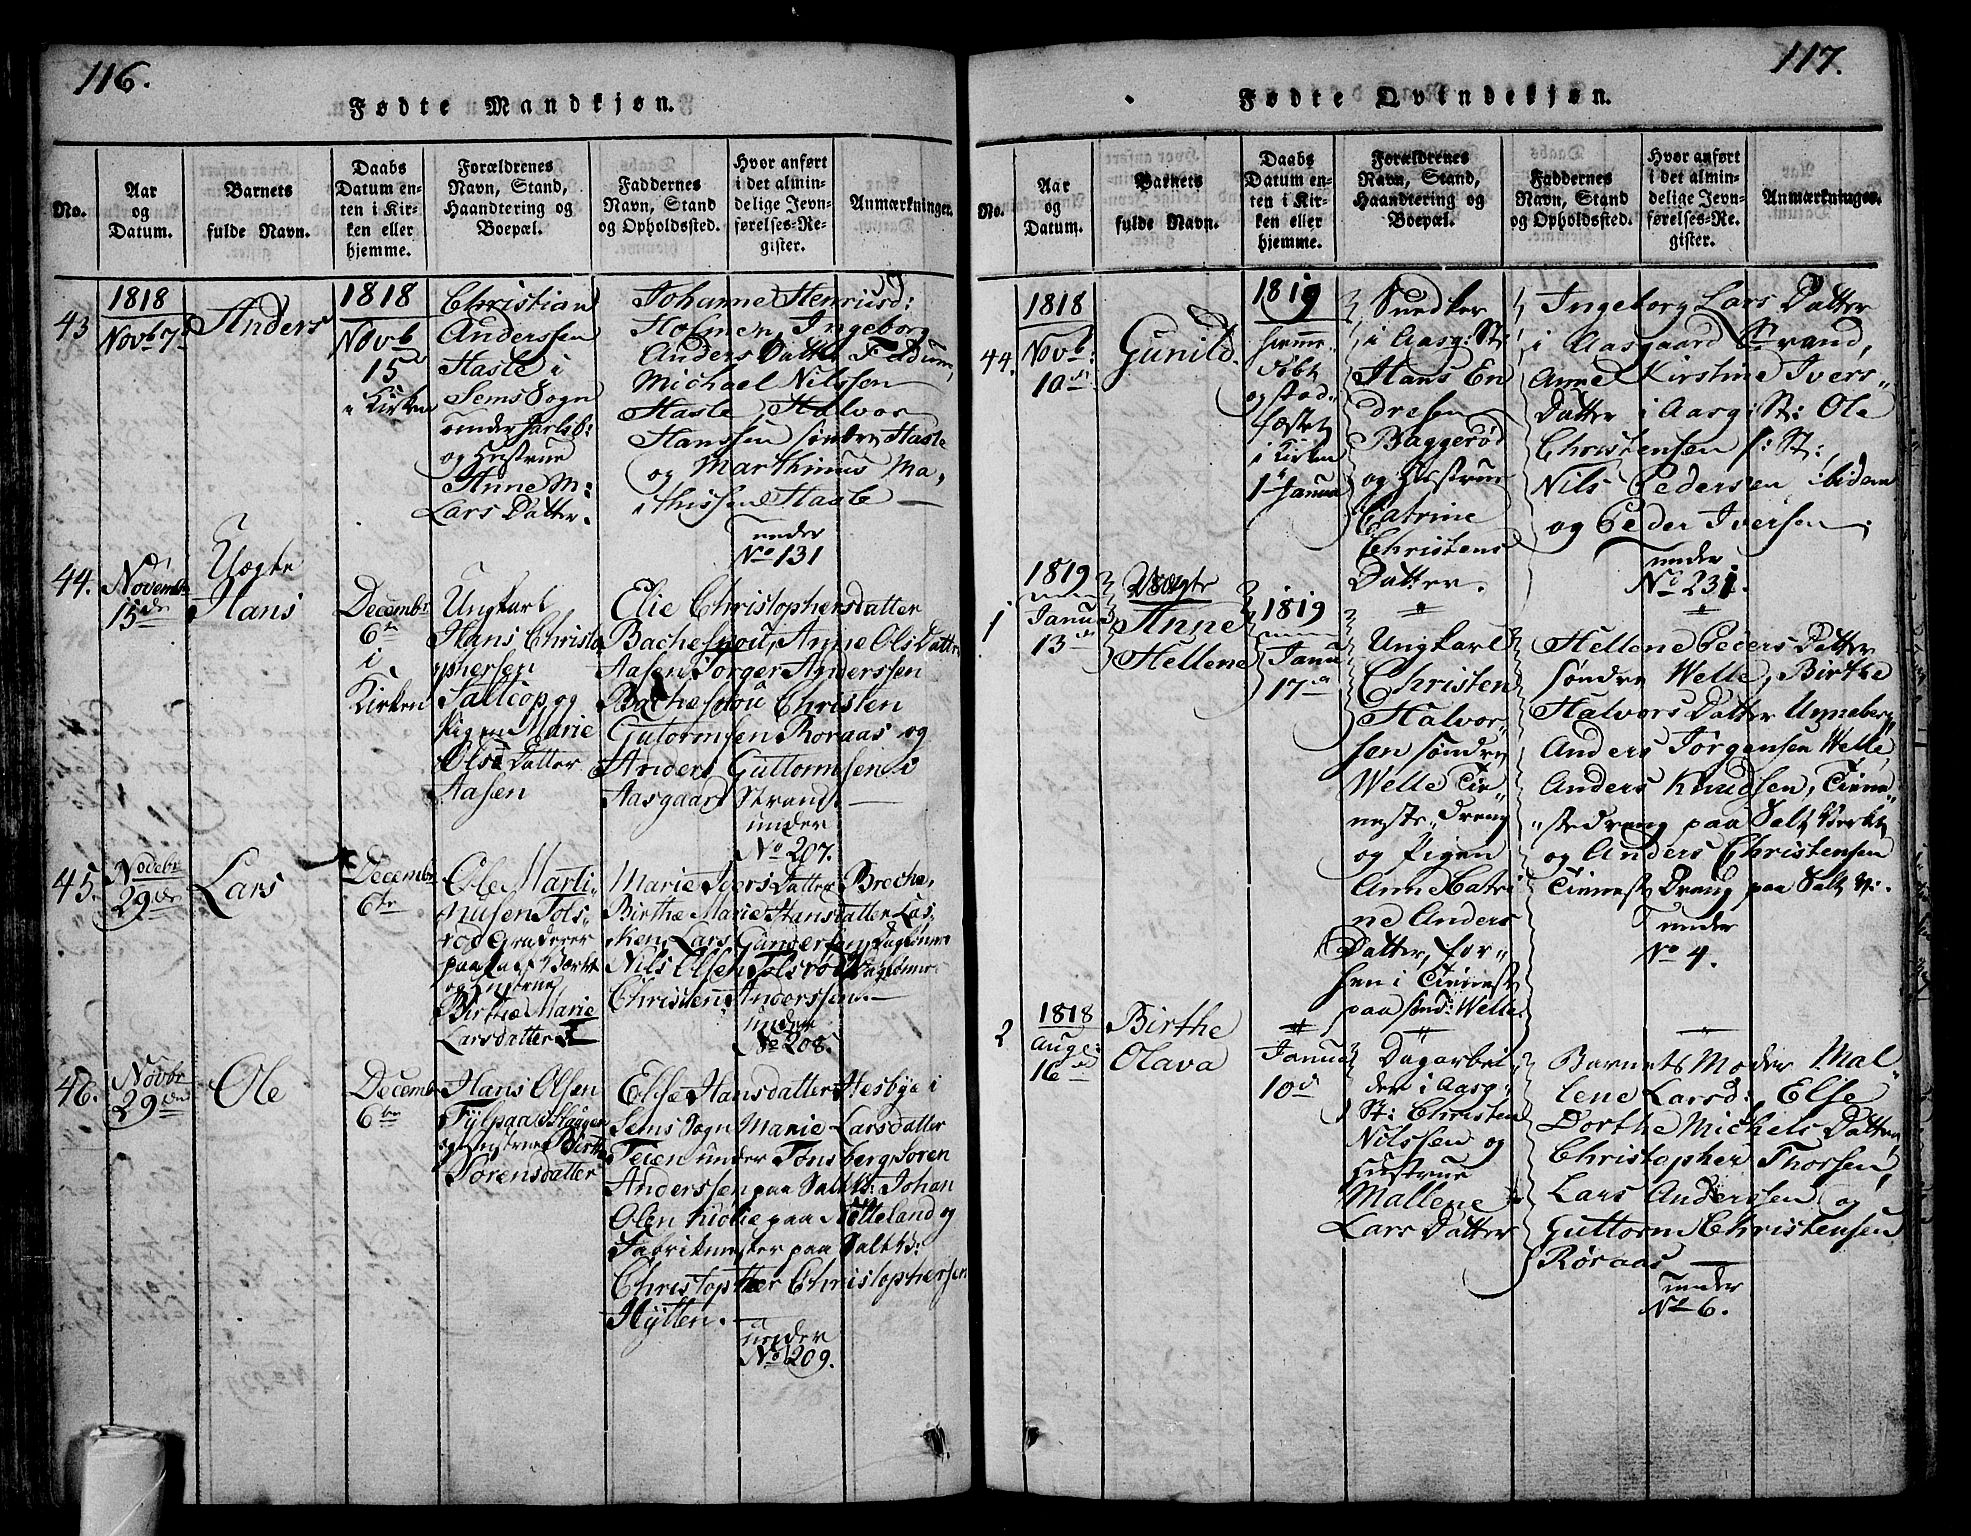 116.
Fødte Mandkjøn.
No.
Aar
og
Datum.
Barnets
fulde Navn.
Daabs
Datum en-
ten i Kir-
ken eller
hjemme.
Forældrenes
Navn, Stand,
Haandtering og
Boepæl.
Faddernes
Navn, Stand
og Opholdssted.
Hvor anført
i det almin-
delige Jevn-
førelses-Re-
gister.
Anmærkninger.
43
1818
Novb 7de
Anders
1818
Novb
15de
i Kirken
Christian
Anderssen
Hasle i
Sems Sogn
under Jarlsb:
og Hustrue
Anne M:
Lars Datter.
Johanne Henriksd:
Holmen, Ingeborg
Anders Datter Feldum,
Michael Nilssen
Hasle, Halvor
Hanssen søndre Hasle
og Marthinus Ma-
thissen Hasle —
under
No 131
44.
Novembr
15de
Uægte
Hans
Decembr
6te
i
Kirken
Ungkarl
Hans Christo
phersen
og
Pigen Marie
Ols Datter
Aasen
Elie Christophersdatter
Anne Ols Datter
Aasen Jørger Anderssen
Christen
Gutormsen Roraas og
Anders Guttormsen i
Aasgaard Strand. —
under
No 207.
45.
Novebr
29de
Lars
Decembr
6te
Ole Marti-
nusen Tols-
rød Graderer
paa Salt Værket
og Hustrue
Birthe Marie
Larsdatter
Marie Iversdatter Breche,
Birthe Marie Hansdatter Las-
ken, Lars Gundersen Dagloner
Nils Olsen Tolsrød Dagloner
Christen Anderssen. —
under
No 208.
46.
Novbr
29de
Ole
Decemb
6te
Hans Olsen
Fylpaa Slagen
og Hustrue Birthe
Sorensdatter
Else Hansdatter Hesbye i
Sems Sogn Marie Larsdatter
Teien under Tønsberg, Soren
Anderssen paa Saltv: Johan
Olen Kiolie paa Nøtteland og
Fabrikmester paa Saltv:
Christopher Christophersen
Hytten. —
under
No 209.
117.
Fødte Qvindekjøn.
No.
Aar
og
Datum.
Barnets
fulde Navn.
Daabs
Datum en-
ten i Kir-
ken eller
hjemme.
Forældrenes
Navn, Stand,
Haandtering og
Boepæl.
Faddernes
Navn, Stand
og Opholdssted.
Hvor anført
i det almin-
delige Jevn-
førelses-Re-
gister.
Anmærkninger.
44.
1818
Novb:
10de
Gunild.
1819
hjemme
døbt
og stad-
fæstet
i Kirken
1te Janua
Snedker
i Aasg: St:
Hans En
dresen
Baggerød
og Hustrue
Catrine
Christens
Datter.
Ingeborg Lars Datter
i Aasgaard Strand,
Anne Kirstine Ivers-
Datter i Aasg: St: Ole
Christensen s: St:
Nils Pedersen ibidem
og Peder Iversen,
under
No 231.
1
1819
Janua
13de
Uægte
Anne
Hellene
1819
Janua
17de
Ungkarl
Christen
Halvor-
sen søndre
Welle Tie-
neste-Dreng
og Pigen
Anne Catri
ne Anders
Datter, for-
hen i Tienest
paa sønd: Welle
Hellene Peders Datter
søndre Welle, Birthe
Halvors Datter Unneberg,
Anders Jørgensen Welle,
Anders Knudsen, Tiene-
stedreng paa Salt Værket
og Anders Christensen
Tienest Dreng paa Salt V:
under
No 4.
2
1818
Aug:
16de
Birthe
Olava
Janua
10de
Dagarbei-
der i Aasg:
St: Christen
Nilssen og
Hustrue
Mallene
Lars Datter
Barnets Moder Mal-
lene Larsd: Else
Dorthe Michels Datter,
Christopher Thorsen,
Lars Anderssen og
Guttorm Christensen
Røraas —
under
No 6.